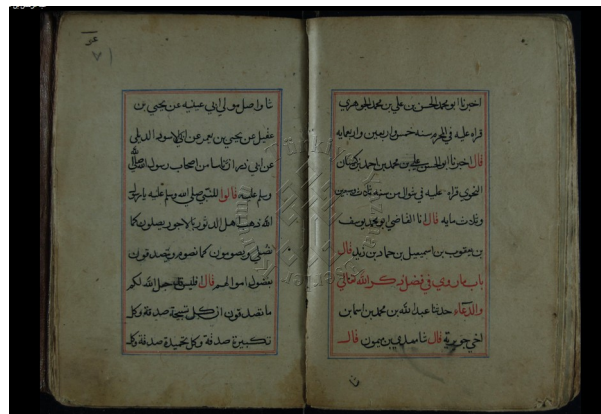 اخبرنا ابو محمد الحسن بن علي بن محمد الجوهري
قراه عليه في المحرم سنه خمس واربعين واربعمايه
قال اخبرنا ابو الحسن علي بن محمد بن احمد بن كيسان
النحوي قراه عليه في شوال من سنه ثلاث وسبعين
وثلاث مايه قال انا القاضي ابو محمد يوسف
بن يعقوب بن اسمعيل بن حماد بن زيد قال
باب ما روي في فضل ذكر الله تعالى
والدعاء حدثنا عبد الله بن محمد بن اسما بن
اخي جويرية قال ثنا مهدي بن ميمون قال
ثنا واصل مولي ابي عيينه عن يحيي بن
عقيل عن يحيي بن يعمر عن ابي الاسود الديلي
عن ابي ذر ان ناسا من اصحاب رسول الله صلى الله
وسلم عليه قالوا للنبي صلى الله وسلم عليه يا رسول
الله ذهب اهل الدثور بالاجور يصلون كما
نصلي ويصومون كما نصوم ويتصدقون
بفضول اموالهم قال افليس قد جعل الله لكم
ما تصدقون ان كل تسبيحة صدقة وكل
تكبيرة صدقة وكل تحميدة صدقة وكل